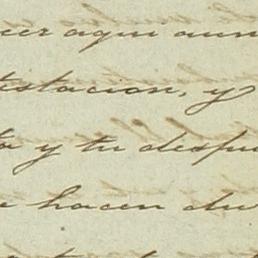 cer aqui aun
testacion, y
y tu despu
hacen du